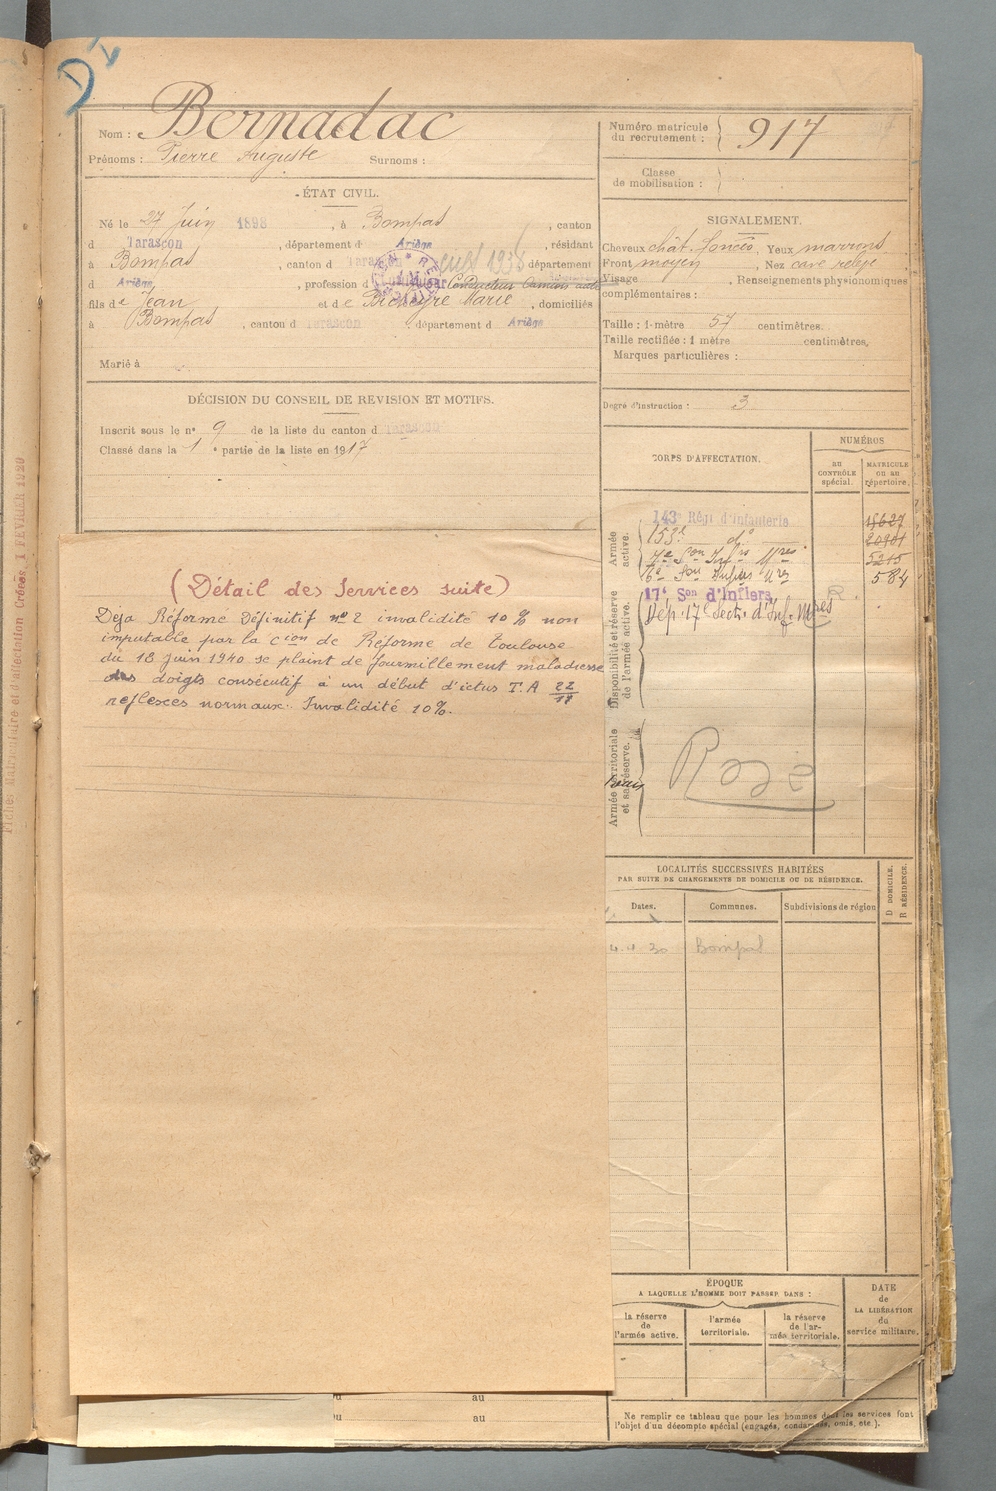 D
Nom : Bernadac
Prénoms : Pierre Auguste Surnoms :
ÉTAT CIVIL.
Né le 27 Juin 1898, à Bompas, canton
d Tarascon, département d Ariège, résidant
à Bompas, canton d Tarascon, département
d Ariège, profession d Conducteur Camions auto
fils de Jean et de Marie, domiciliés
à Bompas, canton d Tarascon, département d Ariège
Marié à
DÉCISION DU CONSEIL DE REVISION ET MOTIFS.
Inscrit sous le n° 9 de la liste du canton d Tarascon
Classé dans la 1e partie de la liste en 1917
(Détail des Services suite)
Déjà Réformé Définitif n° 2 invalidité 10% non
imputable par la Cion de Réforme de Toulouse
du 18 Juin 1940 se plaint de fourmillement maladresse
des doigts consécutif à un début d'ictus T.A 22/17
reflexes normaux. Invalidité 10%.
au
au
Numéro matricule
du recrutement : 917
Classe
de mobilisation :
SIGNALEMENT.
Cheveux chât. foncés, Yeux marrons
Front moyen, Nez cave relevé
Visage, Renseignements physionomiques
complémentaires :
Taille : 1 mètre 57 centimètres.
Taille rectifiée : 1 mètre centimètres.
Marques particulières :
Degré d'instruction : 3
CORPS D'AFFECTATION.
NUMÉROS
AU CONTRÔLE spécial.
MATRICULE ou au répertoire.
Armée active.
143e Régt d'Infanterie
153e do
17e Son d'Infiers
Dép. 17e Section d'Inf. Mres
584
R
Disponibilité et réserve de l'armée active.
Armée territoriale et sa réserve.
LOCALITÉS SUCCESSIVES HABITÉES
PAR SUITE DE CHANGEMENTS DE DOMICILE OU DE RÉSIDENCE.
D DOMICILE.
R RÉSIDENCE.
Dates. Communes. Subdivisions de région
4.4.30 Bompas
ÉPOQUE
A LAQUELLE L'HOMME DOIT PASSER DANS :
la réserve de l'armée active.
l'armée territoriale.
la réserve de l'armée territoriale.
DATE de LA LIBÉRATION du service militaire.
Ne remplir ce tableau que pour les hommes dont les services font
l'objet d'un décompte spécial (engagés, condamnés, omis, etc.).